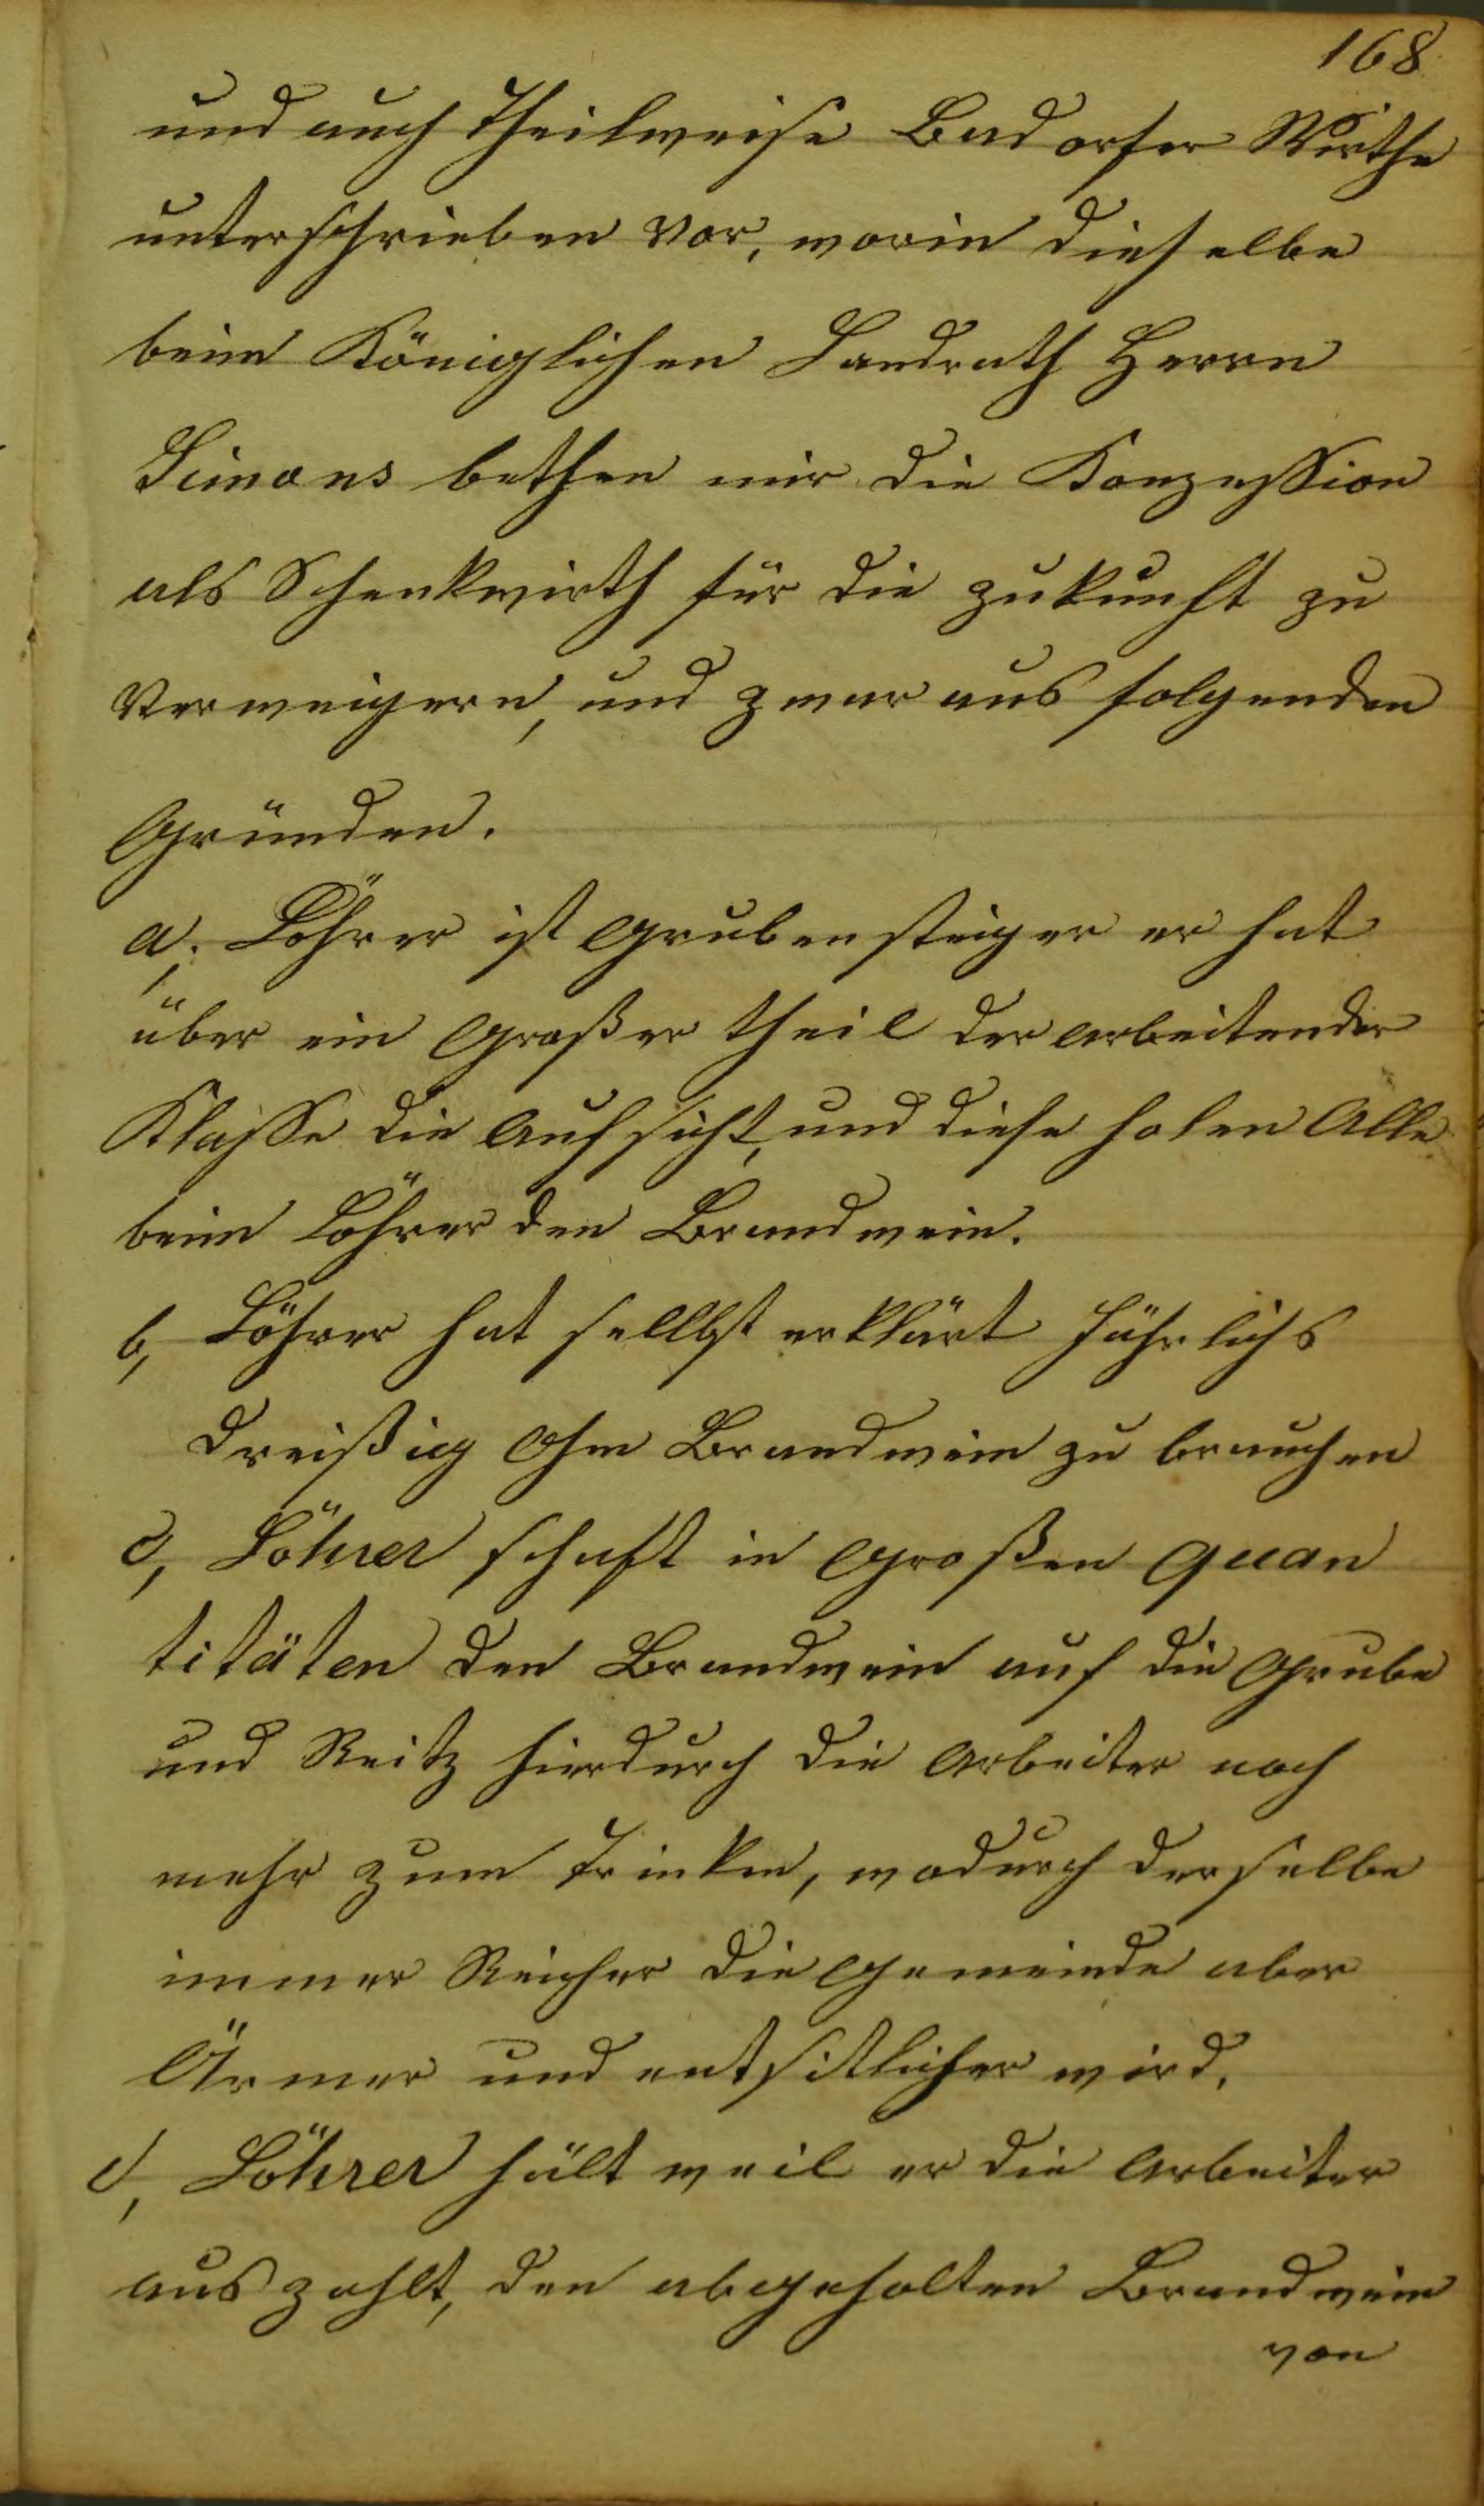 168
und auch Theilweise Badorfer Wirthe
unterschrieben vor, worin dieselbe
beim Königlichen Landrath Herrn
Simons bethen mir die Konzession
als Schenkwirth für die zukunft zu
Verweigern, und zwar aus folgenden
Gründen.
a, Löhrer ist Grubensteiger er hat
über ein Großer theil der arbeitender
Klasse die Aufsicht, und diese holen Alle
beim Löhrer den Brandwein.
b, Löhrer hat sellbst erklärt Jährlichs
dreißig Ohm Brandwein zu brauchen
c, Löhrer schaft in Großen Quan
titäten den Brandwein auf die Grube
und Reitz hierdurch die Arbeiter noch
mehr zum Trinken, wodurch derselbe
immer Reicher die Gemeinde aber
Ärmer und entsittlicher wird.
d, Löhrer hält weil er die Arbeiter
auszahlt, den abgeholten Brandwein
von